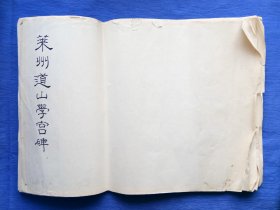 莱州道山學宮碑